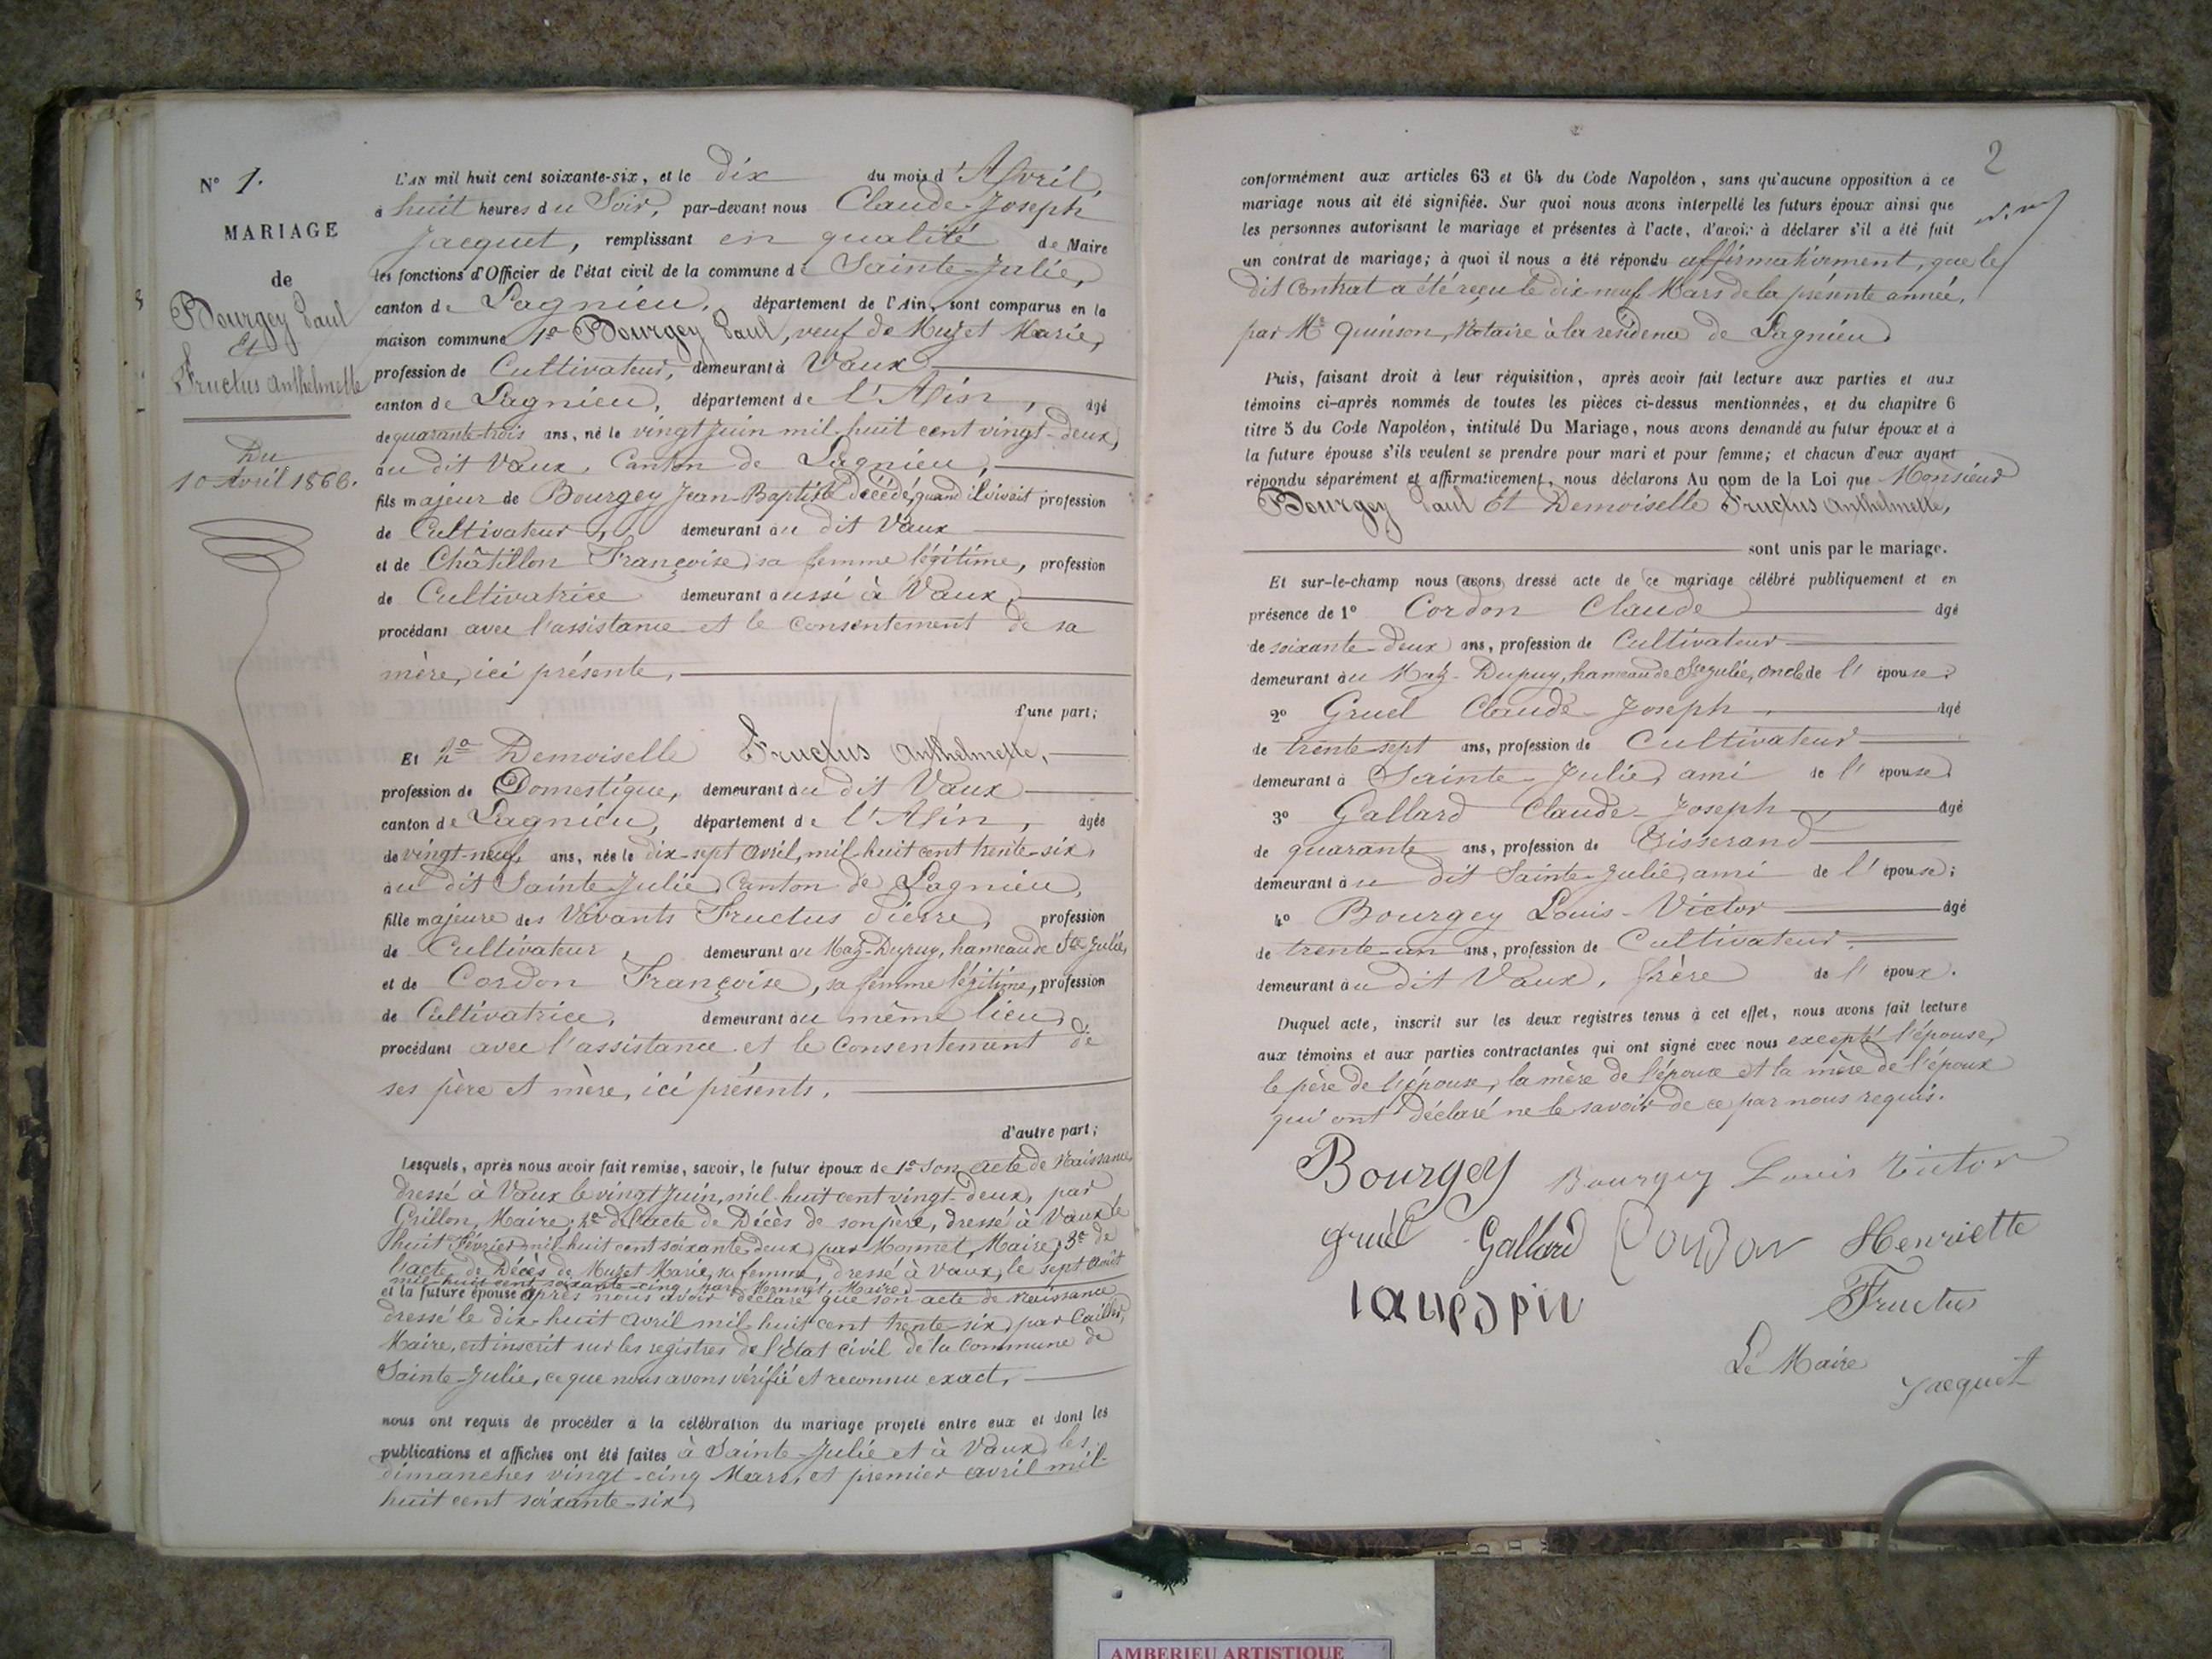 N° 1.
MARIAGE
de
Bourgey Paul
Et
Fructus Anthelmette
Du
10 Avril 1866.
L'AN mil huit cent soixante-six, et le dix du mois d'Avril,
à huit heures du Soir, par-devant nous Claude-Joseph
Jacquet, remplissant en qualité de Maire
les fonctions d'Officier de l'état civil de la commune de Sainte-Julie,
canton de Lagnieu, département de l'Ain, sont comparus en la
maison commune 1° Bourgey Paul, veuf de Muzet Marie,
profession de Cultivateur, demeurant à Vaux
canton de Lagnieu, département de l'Ain, âgé
de quarante-trois ans, né le vingt Juin mil-huit cent vingt-deux,
au dit Vaux, Canton de Lagnieu,
fils majeur de Bourgey Jean-Baptiste décédé, quand il vivait profession
de Cultivateur, demeurant au dit Vaux
et de Châtillon Françoise, sa femme légitime, profession
de Cultivatrice demeurant aussi à Vaux,
procédant avec l'assistance et le Consentement de sa
mère, ici présente,
d'une part;
Et 2° Demoiselle Fructus Anthelmette,
profession de Domestique, demeurant au dit Vaux
canton de Lagnieu, département de l'Ain, âgée
de vingt-neuf ans, née le dix-sept Avril, mil-huit cent trente-six,
au dit Sainte-Julie, Canton de Lagnieu,
fille majeure des Vivants Fructus Pierre, profession
de Cultivateur, demeurant au Maz-Dupuy, hameau de Ste Julie,
et de Cordon Françoise, sa femme légitime, profession
de Cultivatrice, demeurant au même lieu,
procédant avec l'assistance et le Consentement de
ses père et mère, ici présents,
d'autre part;
Lesquels, après nous avoir fait remise, savoir, le futur époux de 1° son acte de Naissance
dressé à Vaux le vingt Juin, mil-huit cent vingt-deux, par
Grillon, Maire; 2° de l'acte de Décès de son père, dressé à Vaux le
huit Février mil-huit cent soixante-deux, par Monnet, Maire; 3° de
l'acte de Décès de Muzet Marie, sa femme, dressé à Vaux, le sept Août
mil-huit cent soixante-cinq, par Monnet, Maire,
et la future épouse après nous avoir déclaré que son acte de naissance
dressé le dix-huit avril mil-huit cent trente-six, par
Maire, est inscrit sur les registres de l'État civil de la Commune de
Sainte-Julie, ce que nous avons vérifié et reconnu exact,
nous ont requis de procéder à la célébration du mariage projeté entre eux et dont les
publications et affiches ont été faites à Sainte-Julie et à Vaux, les
dimanches vingt-cinq Mars, et premier avril mil-
huit cent soixante-six,
2
conformément aux articles 63 et 64 du Code Napoléon, sans qu'aucune opposition à ce
mariage nous ait été signifiée. Sur quoi nous avons interpellé les futurs époux ainsi que
les personnes autorisant le mariage et présentes à l'acte, d'avoir à déclarer s'il a été fait
un contrat de mariage; à quoi il nous a été répondu affirmativement, que le
dit Contrat a été reçu le dix-neuf Mars de la présente année,
par Me Quinson, Notaire à la résidence de Lagnieu
Puis, faisant droit à leur réquisition, après avoir fait lecture aux parties et aux
témoins ci-après nommés de toutes les pièces ci-dessus mentionnées, et du chapitre 6
titre 5 du Code Napoléon, intitulé Du Mariage, nous avons demandé au futur époux et à
la future épouse s'ils veulent se prendre pour mari et pour femme; et chacun d'eux ayant
répondu séparément et affirmativement, nous déclarons Au nom de la Loi que Monsieur
Bourgey Paul Et Demoiselle Fructus Anthelmette,
sont unis par le mariage.
Et sur-le-champ nous avons dressé acte de ce mariage célébré publiquement et en
présence de 1° Cordon Claude âgé
de soixante-deux ans, profession de Cultivateur
demeurant au Maz-Dupuy, hameau de Ste Julie, oncle de l'épouse
2° Gruel Claude-Joseph, âgé
de trente-sept ans, profession de Cultivateur
demeurant à Sainte-Julie, ami de l'épouse
3° Gallard Claude-Joseph âgé
de quarante ans, profession de Tisserand
demeurant au dit Sainte-Julie, ami de l'épouse;
4° Bourgey Louis-Victor âgé
de trente-un ans, profession de Cultivateur,
demeurant au dit Vaux, frère de l'époux.
Duquel acte, inscrit sur les deux registres tenus à cet effet, nous avons fait lecture
aux témoins et aux parties contractantes qui ont signé avec nous excepté l'épouse,
le père de l'épouse, la mère de l'épouse et la mère de l'époux
qui ont déclaré ne le savoir de ce par nous requis.
Bourgey Bourgey Louis Victor
gruel Gallard Cordon Henriette
Fructus
Le Maire
Jacquet
AMBERIEU ARTISTIQUE